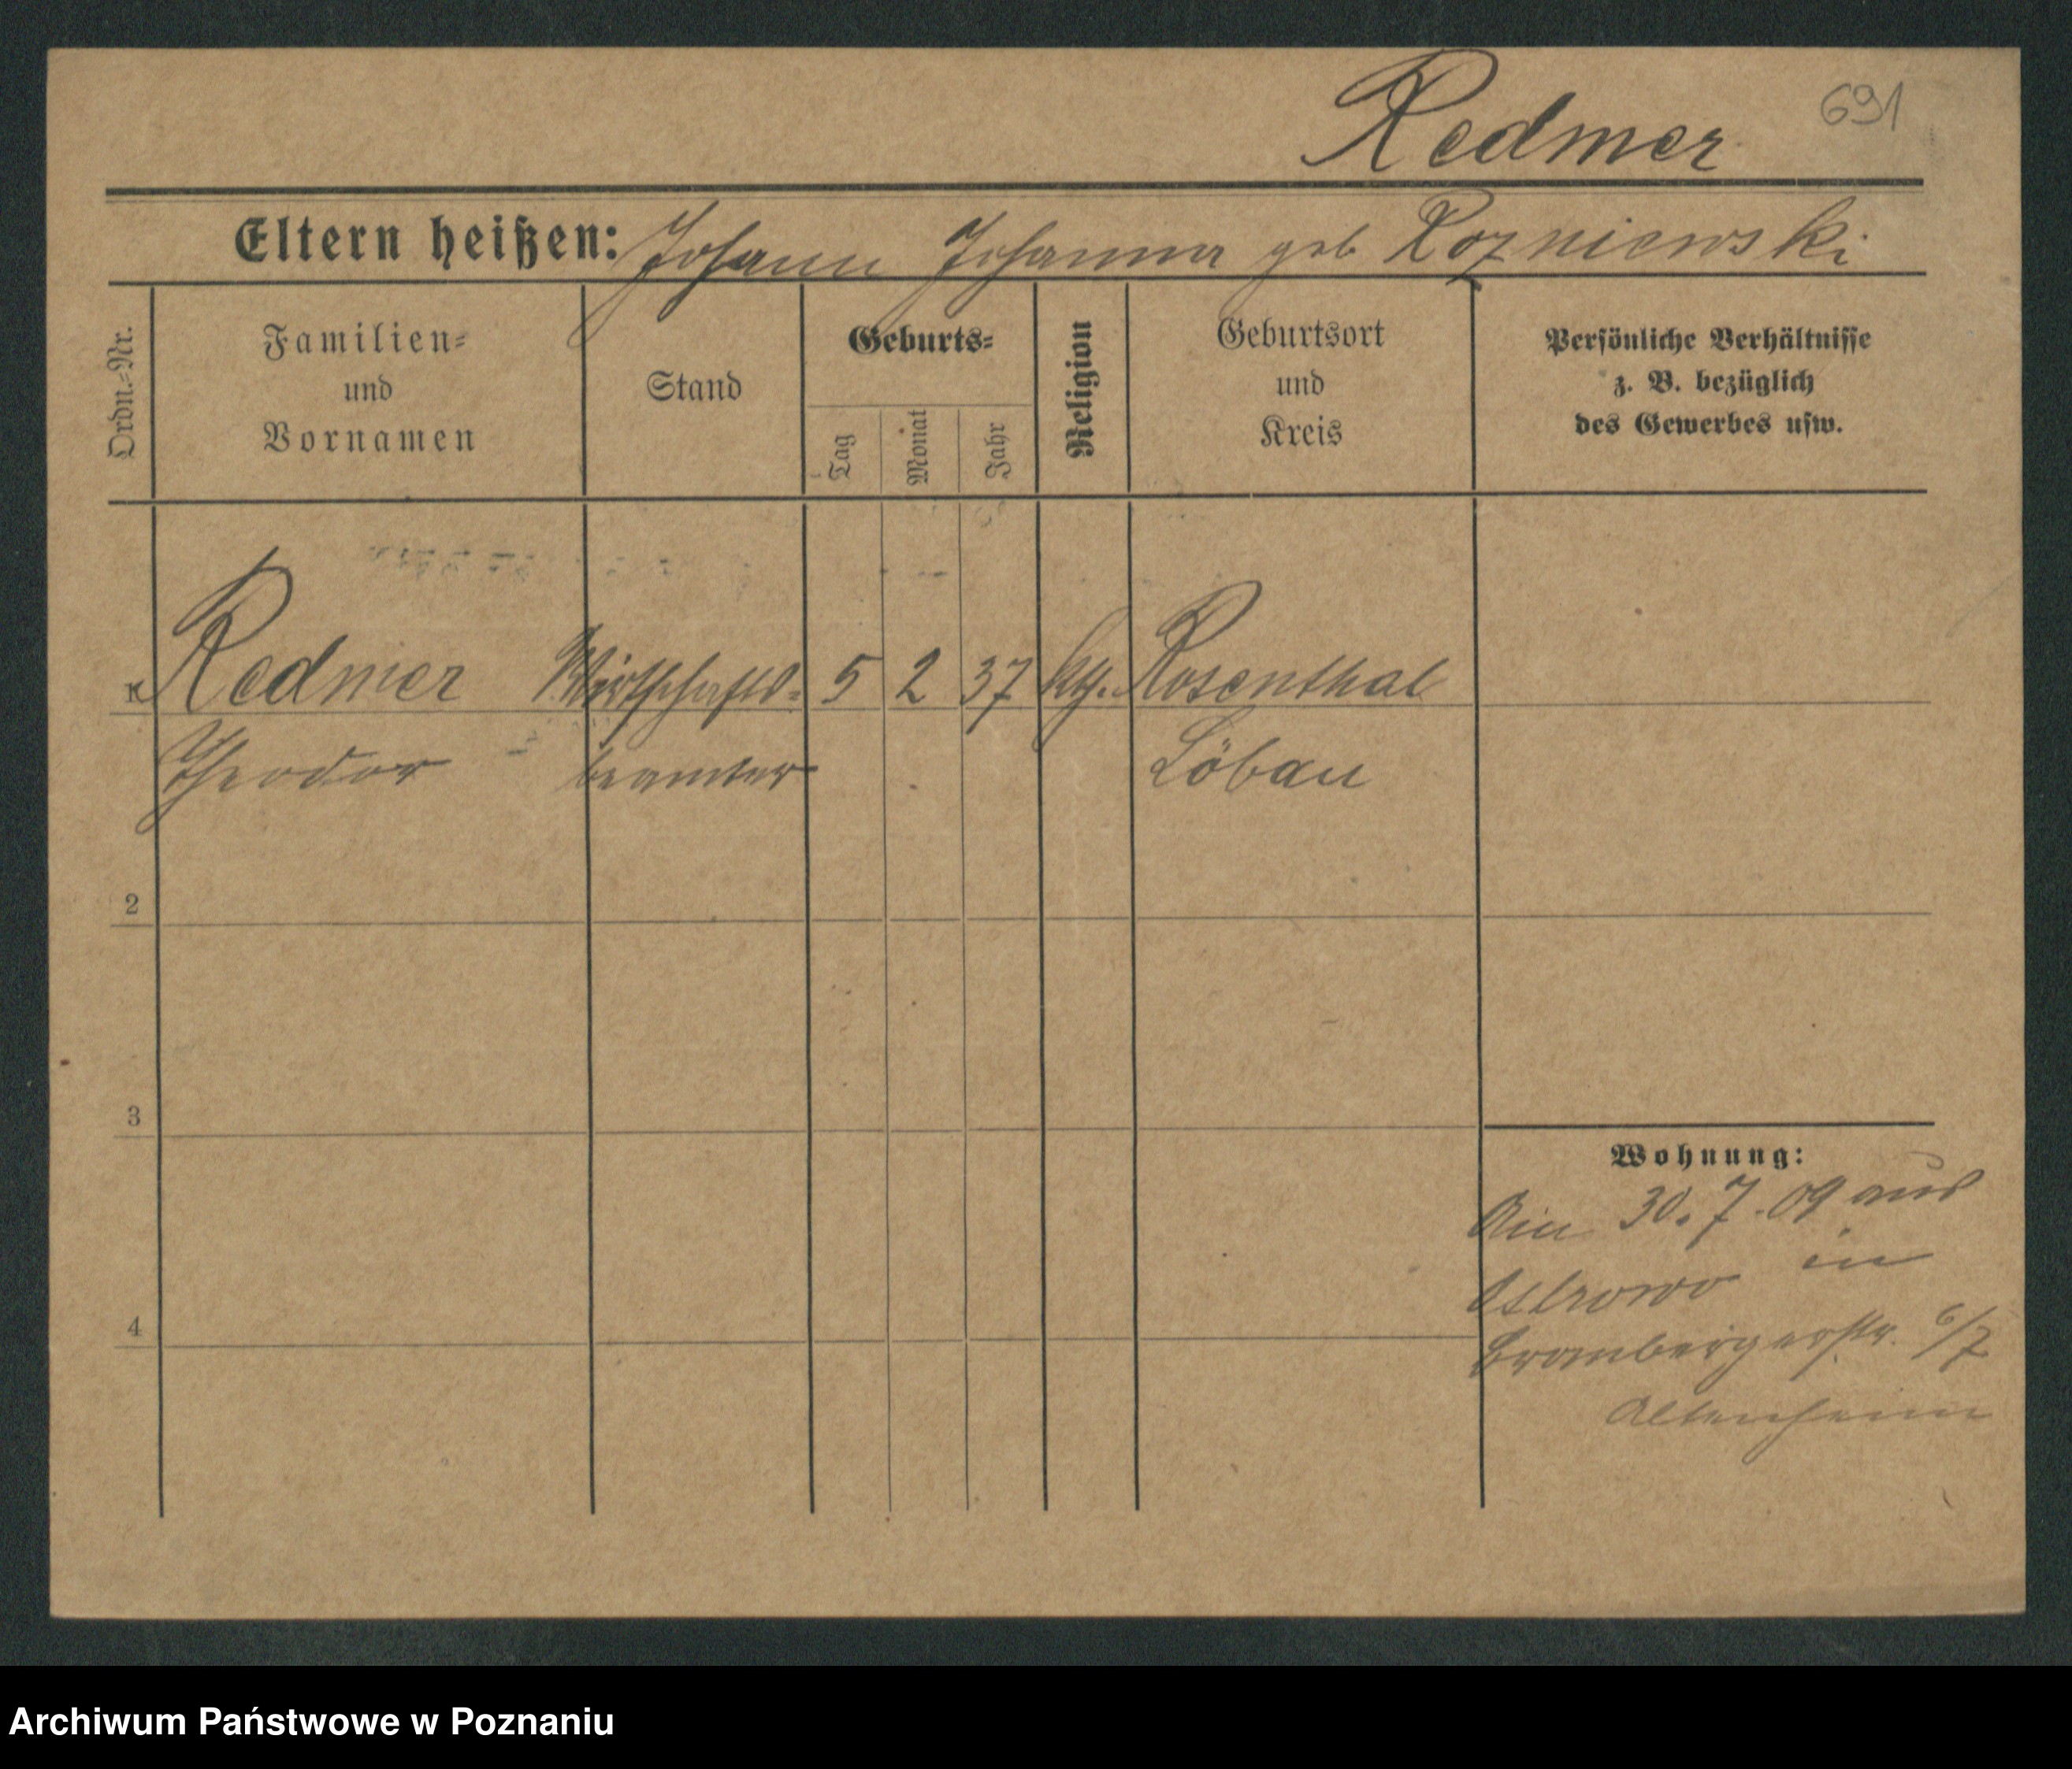 Redmer
691
Eltern heißen: Johann Johanna geb Pozniewski
Ordn.-Nr.
Familien-
und
Vornamen
Stand
Geburts-
Tag
Monat
Jahr
Religion
Geburtsort
und
Kreis
Persönliche Verhältnisse
z. B. bezüglich
des Gewerbes usw.
Redmer Wirtschafts- 5 2 37 ktg. Rosenthal
Theodor beamter Löbau
2
3
4
Wohnung:
30. 7. 09 aus
Ostrowo in
Brombergerstr. 6/7
Altenheim
Archiwum Państwowe w Poznaniu